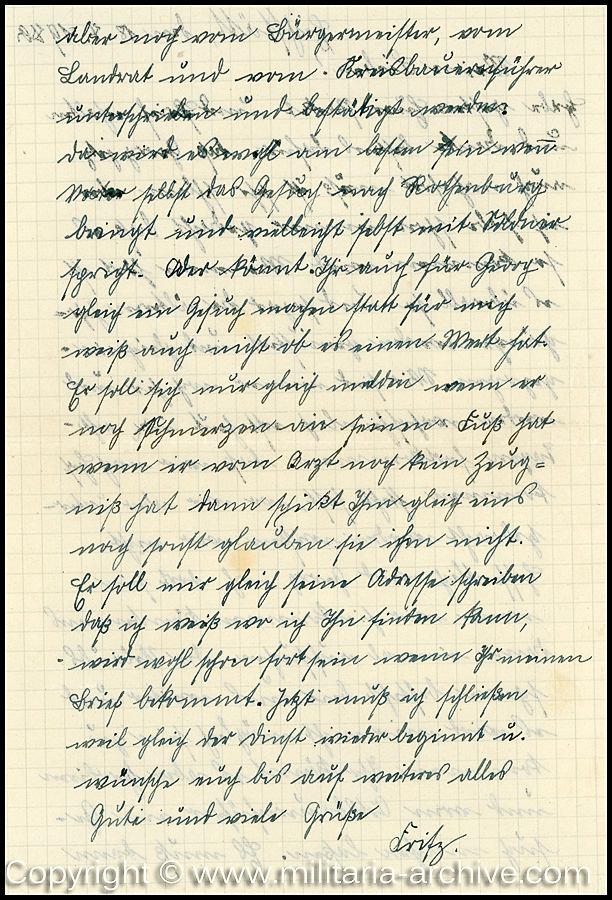 aber noch vom Bürgermeister, vom
Landrat und vom Kreisbauernführer
unterschrieben und bestätigt werden.
Da wird es wohl am besten sein wenn
Vater selbst das Gesuch nach Rothenburg
bringt und vielleicht selbst mit Soldner
spricht. Oder könnt Ihr auch für Georg
gleich ein Gesuch machen statt für mich
weiß auch nicht ob es einen Wert hat.
Er soll sich nur gleich melden wenn er
noch Schmerzen an seinen Fuß hat
wenn er vom Arzt noch kein Zeug=
niß hat dann schickt Ihm gleich eins
nach sonst glauben sie ihm nicht.
Er soll mir gleich seine Adresse schreiben
daß ich weiß wo ich Ihn finden kann,
wird wohl schon fort sein wenn Ihr meinen
Brief bekommt. Jetzt muß ich schließen
weil gleich der Dinst wieder beginnt u.
wünsche euch bis auf weiteres alles
Gute und viele Grüße
Fritz.
Copyright © www.militaria-archive.com